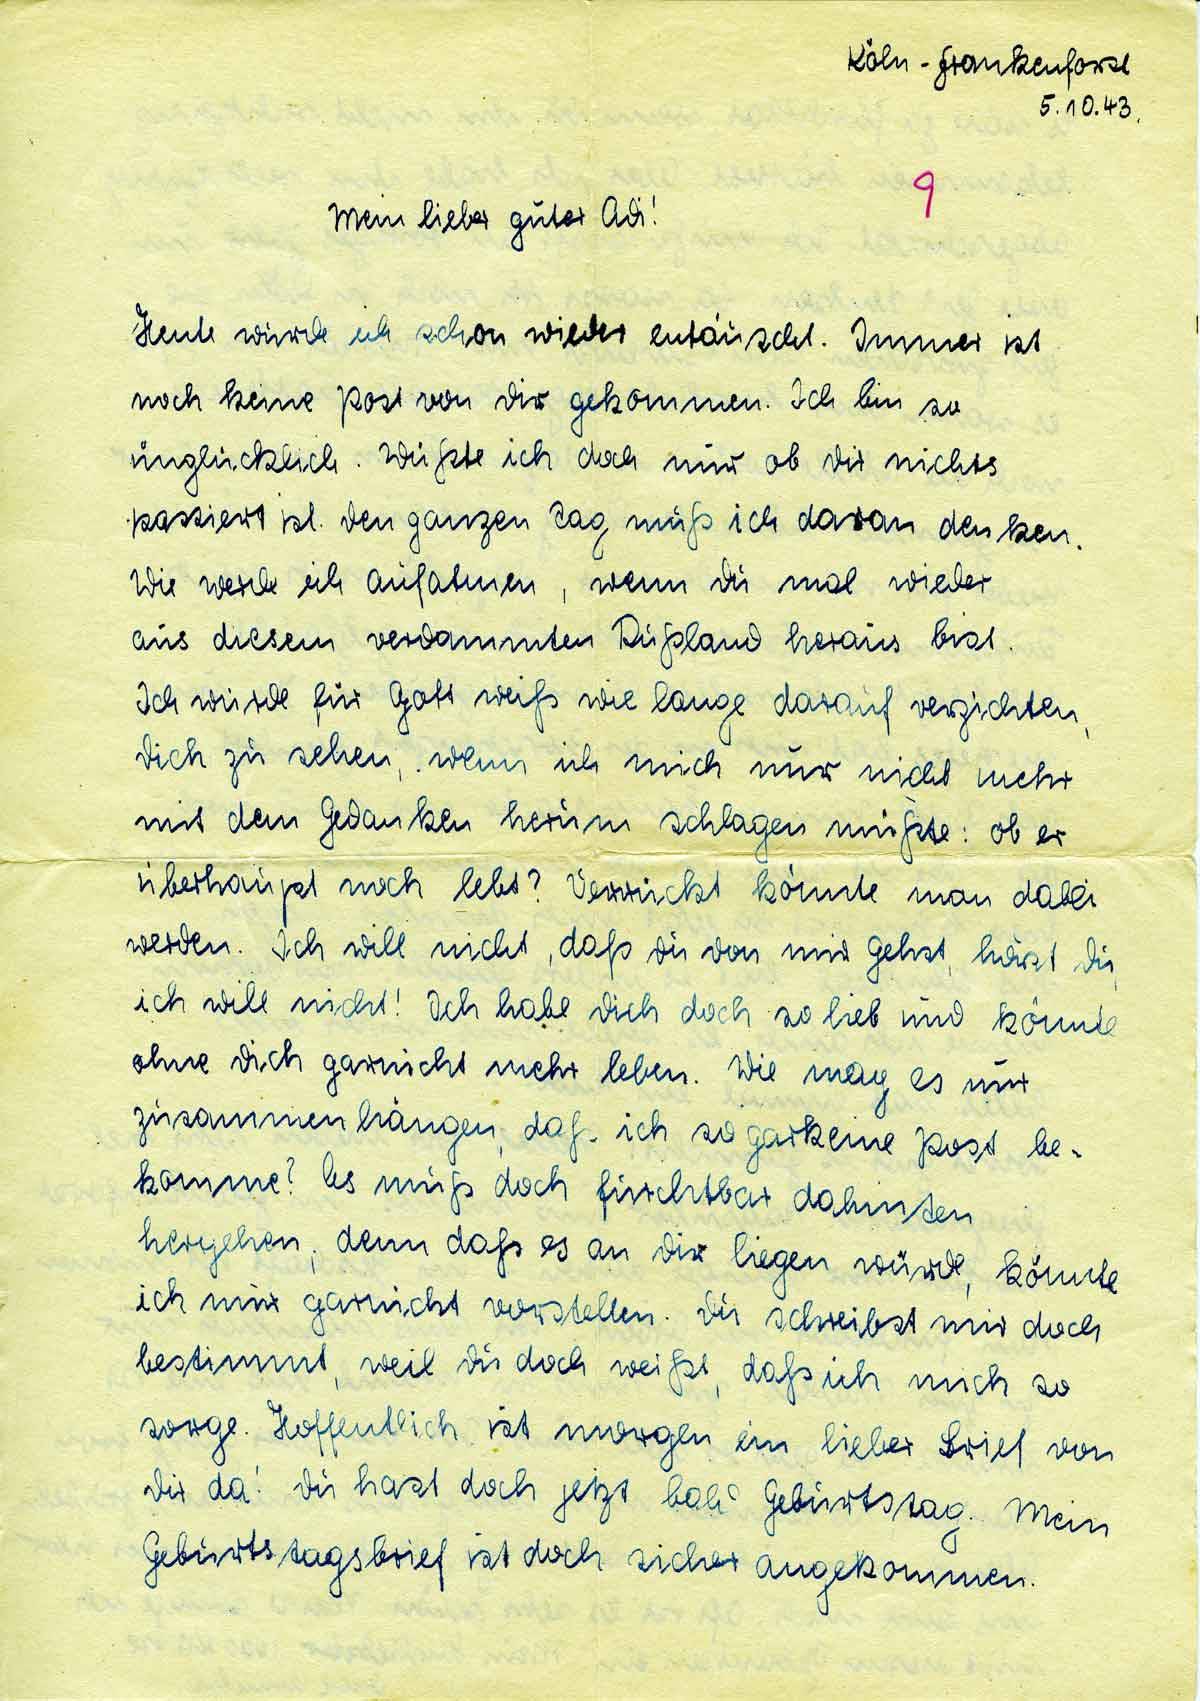 Köln-Frankenforst
5.10.43.
9
Mein lieber guter Adi!
Heute wurde ich schon wieder entäuscht. Immer ist
noch keine Post von Dir gekommen. Ich bin so
unglücklich. Wüßte ich doch nur ob Dir nichts
passiert ist. Den ganzen Tag muß ich daran denken.
Wie werde ich aufatmen, wenn Du mal wieder
aus diesem verdammten Rußland heraus bist.
Ich würde für Gott weiß wie lange darauf verzichten,
Dich zu sehen, wenn ich mich nur nicht mehr
mit dem Gedanken herum schlagen müßte: ob er
überhaupt noch lebt? Verrückt könnte man dabei
werden. Ich will nicht, daß Du von mir gehst, hörst Du,
ich will nicht! Ich habe Dich doch so lieb und könnte
ohne Dich garnicht mehr leben. Wie mag es nur
zusammenhängen, daß ich so garkeine Post be-
komme? Es muß doch furchtbar dahinten
hergehen, denn daß es an Dir liegen würde, könnte
ich mir garnicht vorstellen. Du schreibst mir doch
bestimmt, weil Du doch weißt, daß ich mich so
sorge. Hoffentlich ist morgen ein lieber Brief von
Dir da! Du hast doch jetzt bald Geburtstag. Mein
Geburtstagsbrief ist doch sicher angekommen.